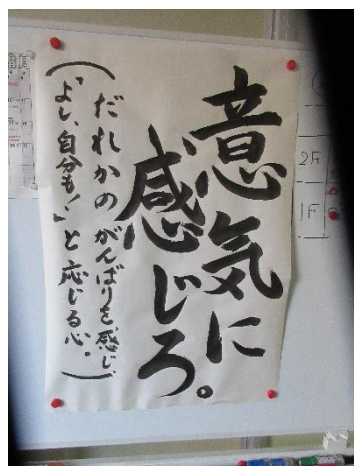 意気に
感じろ。
(だれかのがんばりを感じ、
「よし、自分も!」と応じる心。)
2F
1F